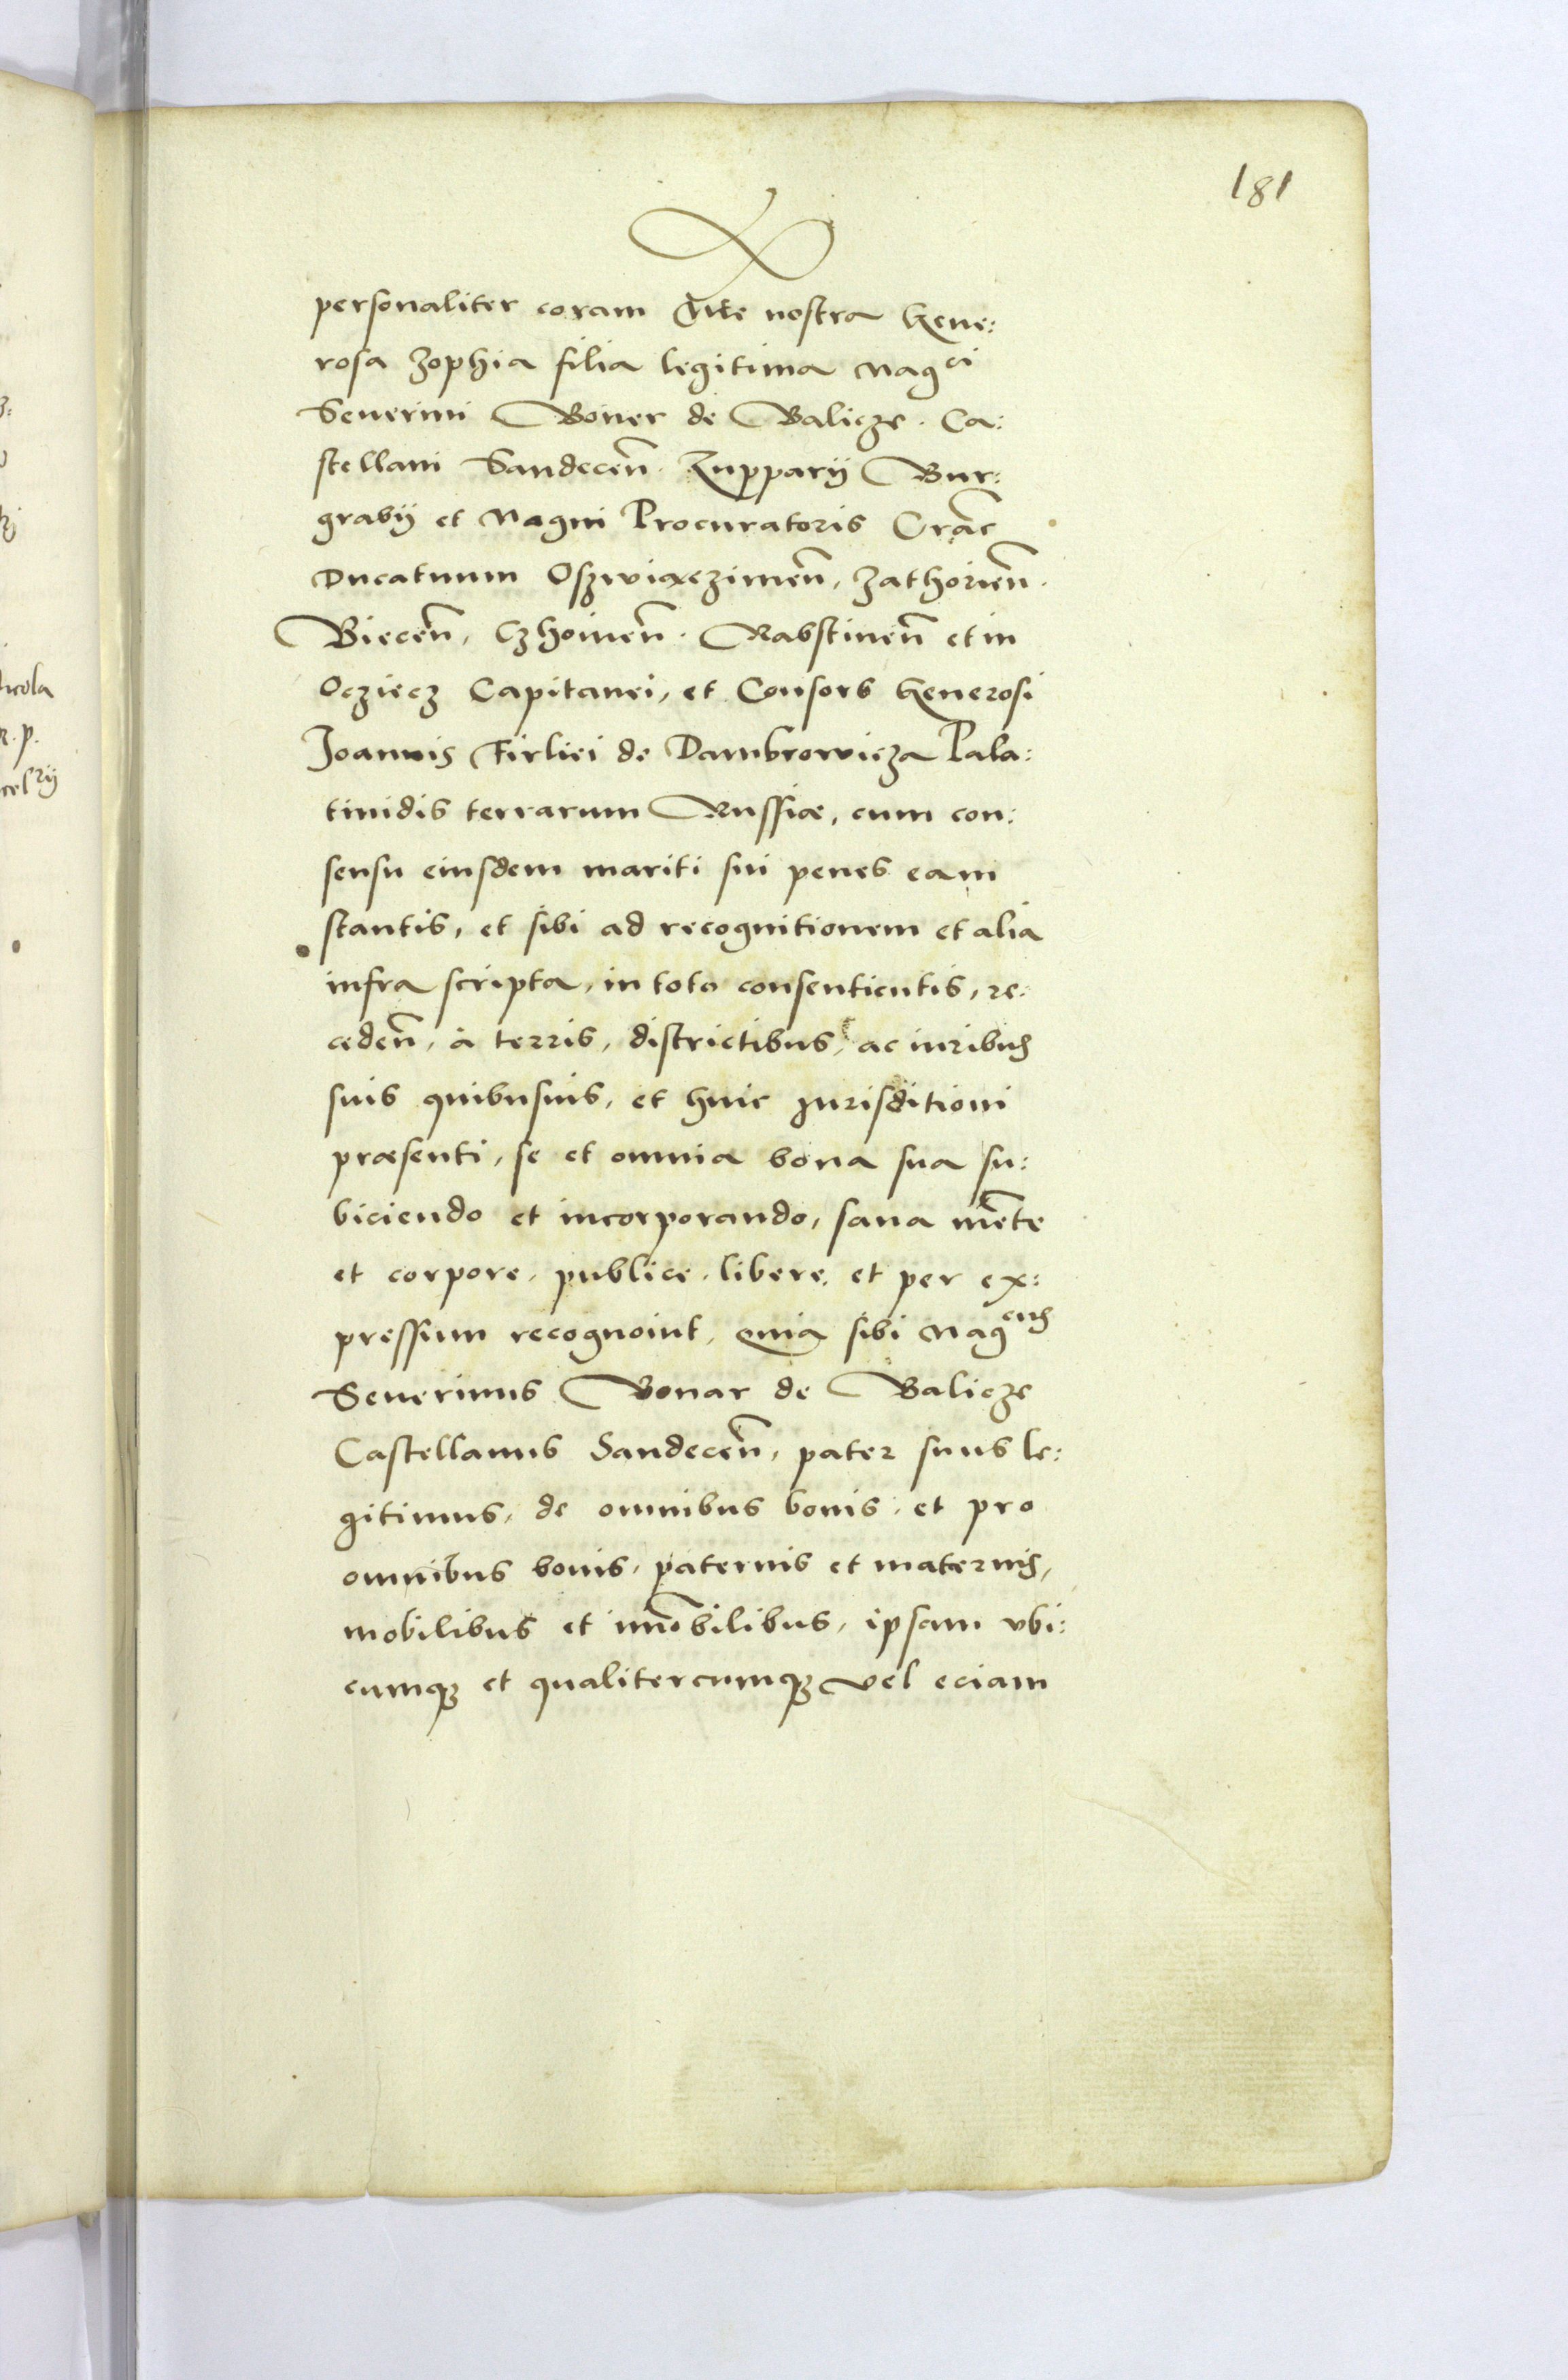 181
personaliter coram Mte nostra Gene:
rosa Zophia filia legitima Magci
Seuerini Boner de Balicze. Ca:
stellani Sandecen̄. Zupparij Bur:
grabij et Magni Procuratoris Crac̄
Ducatuum Oszwiaeczimen̄, Zathorien̄.
Biecen̄, Czhoinen̄. Rabstinen̄ et in
Ocziecz Capitanei, et Consors Generosi
Joannis Firliei de Dambrowicza Pala:
tinidis terrarum Russiæ, cum con:
sensu eiusdem mariti sui penes eam
stantis, et sibi ad recognitionem et alia
infra scripta, in toto consentientis, re:
ceden̄, à terris, districtibus, ac iuribus
suis quibusuis, et huic Jurisditioni
præsenti, se et omnia bona sua su:
biciendo et incorporando, sana mēte
et corpore, publice, libere, et per ex:
pressum recognouit, Quia sibi Magcus
Seuerinus Bonar de Balicze
Castellanus Sandecen̄, pater suus le:
gitimus, de omnibus bonis, et pro
omnibus bonis, paternis et maternis,
mobilibus et im̄obilibus, ipsam vbi:
cumq3 et qualitercumq3 vel eciam
icola
R. p.